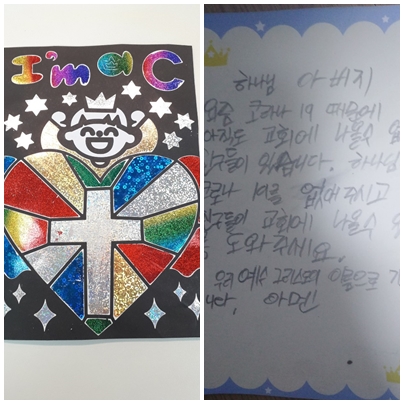 I'm a C
하나님 아버지
요즘 코로나 19 때문에
아직도 교회에 나올수
친구들이 있습니다. 하나님
코로나 19를 없애주시고
친구들이 교회에 나올수
도와주세요.
우리 예수 그리스도 이름으로 기
니다. 아멘